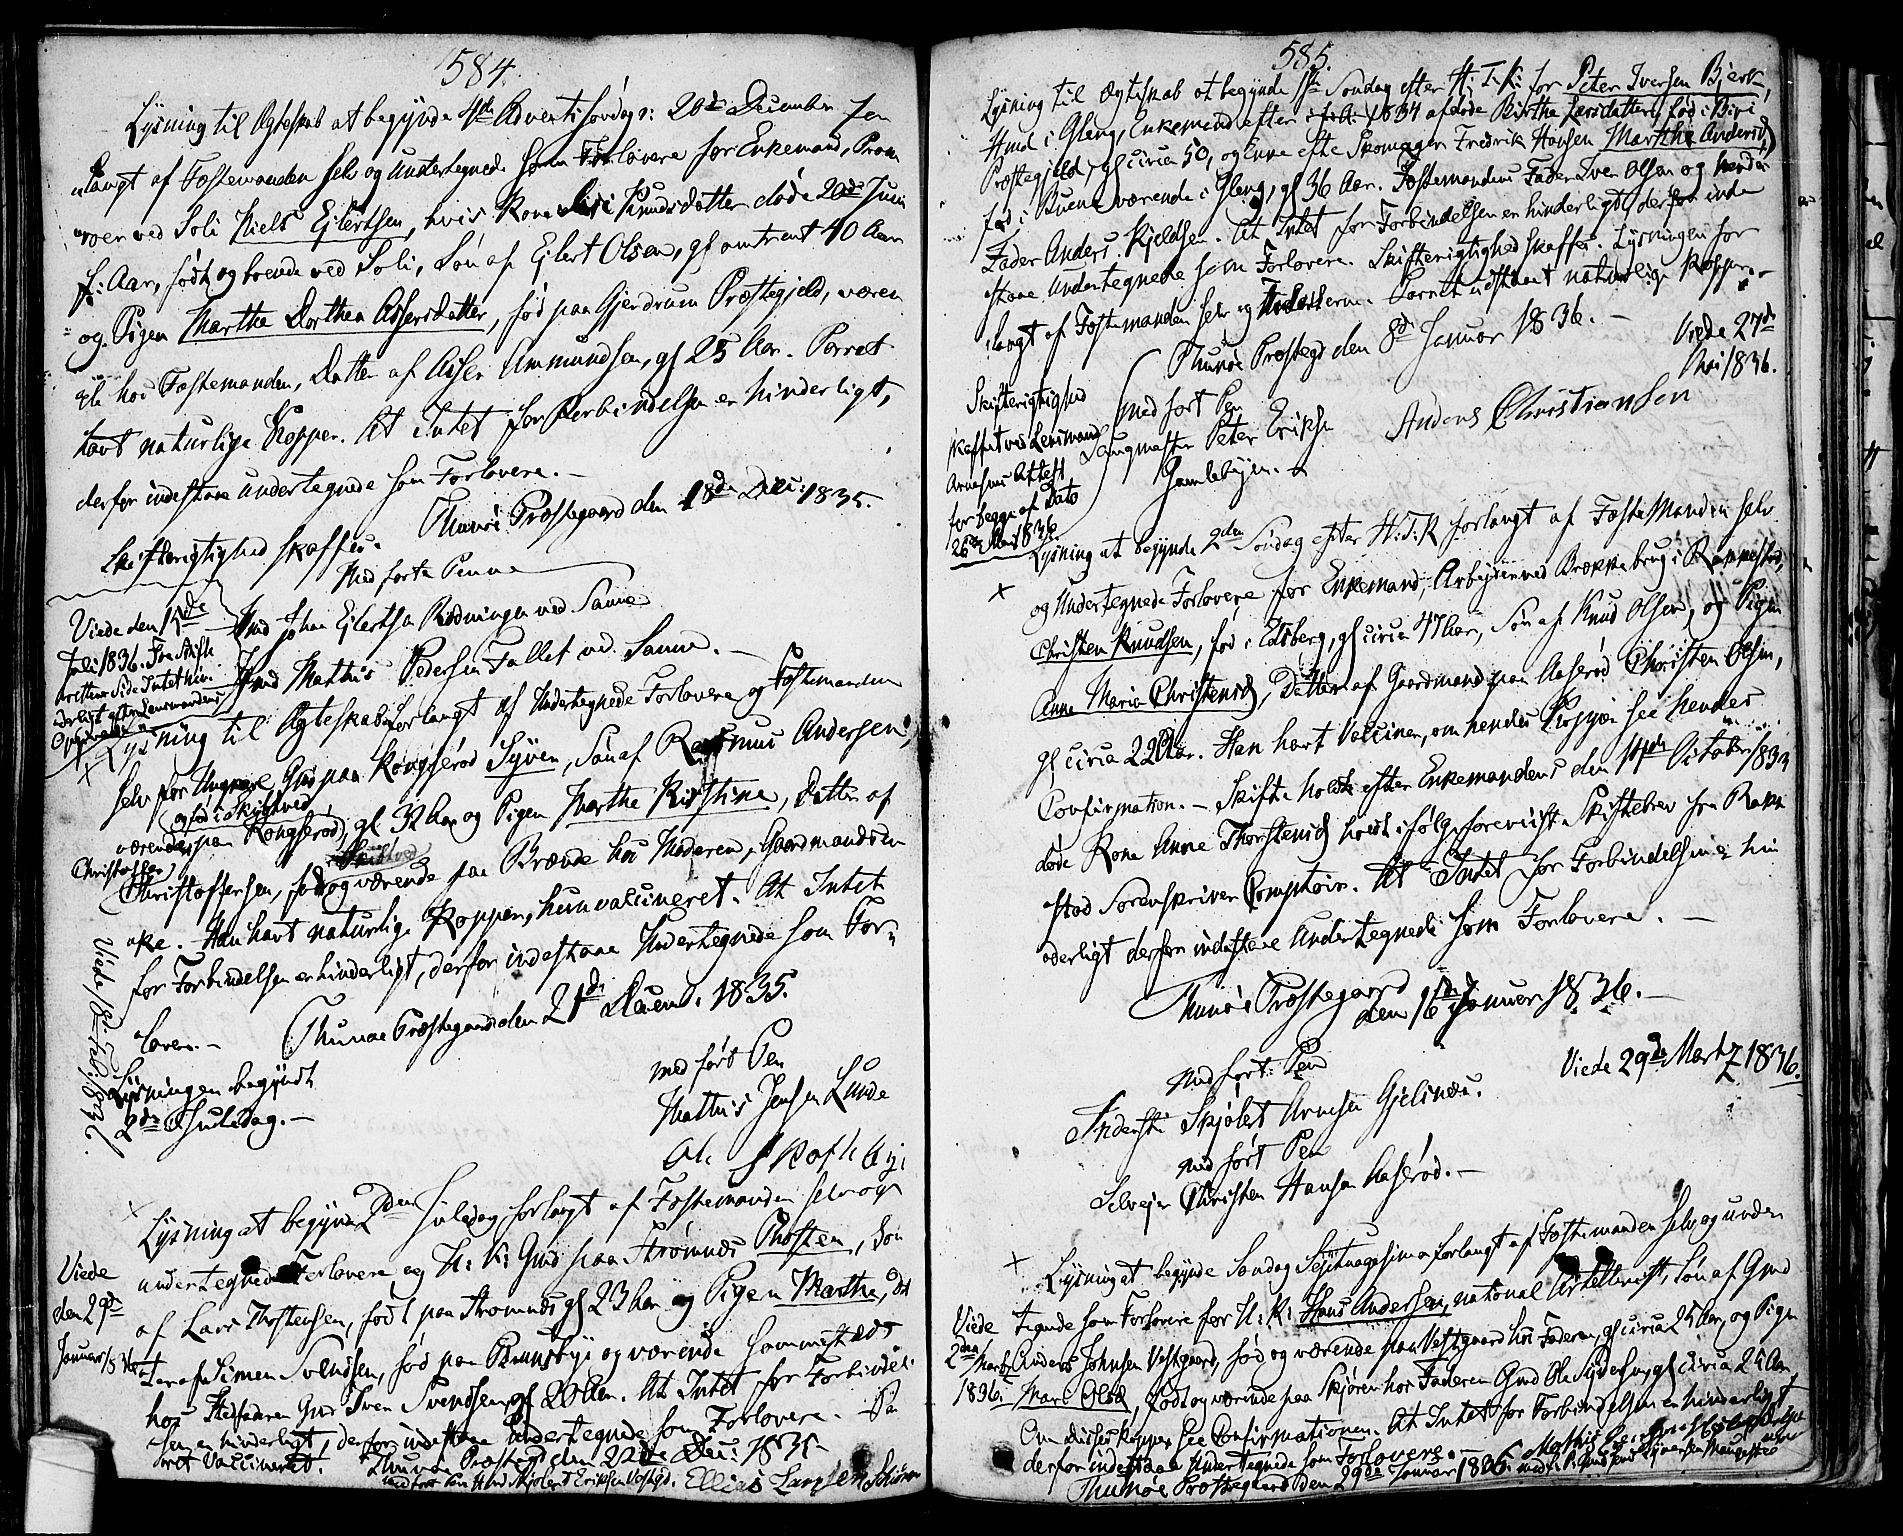 584.
Lysning til Ægteskab at begynde 4de Advents Søndag: 20de December for
langt af Fæstemanden selv og undertegnede som Forlovere for Enkemand,
ved Soli Niels Ejlertsen, hvis Kone Siri Knudsdatter døde 20de Juni
f: Aar, født og boende ved Soli, Søn af Ejlert Olsen, gl omtrent 40 Aar
og Pigen Marthe Dorthea Assersdatter, fød paa Gjerdrum Præstegjeld, væren
de hos Fæstemanden, Datter af Asser Ammundsen, gl 25 Aar. Parret
havt naturlige Kopper. At Intet for Forbindelsen er hinderligt,
derfor indestaae undertegnede som Forlovere.
Thunøe Præstegaard den 18de Dec: 1835.
Skifterigtighed skaffes.
Med førte Penne
Viede den 15de
Juli 1836. Fra Skif
terettens Side Intet hin
derligt efter Lensmandens
Hmd Johan Ejlertsen Rødningen ved Sanne
Hmd Mathis Pedersen Fallet ved Sanne.
Lysning til Ægteskab forlangt af Undertegnede Forlovere og Fæstemanden
selv for Ungkarl, Gmd paa Kongserød Syver, Søn af Rasmus Andersen,
og fød i Skibtved
værende paa Kongserød, gl 32 Aar og Pigen Marthe Kirstine, Datter af
Christoffer
Christoffersen, fød og værende paa Brænde hos Moderen, Gaardmandsen
ke. Han havt naturlige Kopper, hun vaccineret. At Intet
for Forbindelsen er hinderligt, derfor indestaae Undertegnede som For
lovere.
Thunøe Præstegaard den 21de Decemb: 1835.
Viede 18de Feb: 1836.
Lysningen begyndt
2den Juledag.
med ført Pen
Mathis Jensen Lunde
Ole Skofteby
Lysning at begynde 2den Juledag, forlangt af Fæstemanden selv og
undertegnede Forlovere og U: K: Gmd paa Strømnes Thosten, Søn
Viede
den 29de
Januar 1836
af Lars Thostensen, født paa Strømnes gl 23 Aar og Pigen Marthe, Dat
ter af Simen Svendsen, fød paa Brunsbye og værende
hos Stedfaderen Gmd Sven Svendsen, gl 20 Aar. At Intet for Forbindel
sen er hinderligt, derfor indestaae undertegnede som Forlovere.
ret Vaccineret. Thunøe Præstegd den 22de Dec: 1835
Ellias Larssen
585.
Lysning til Ægteskab at begynde 1ste Søndag efter H. T. K: for Peter Iversen Bjerk,
Hmd i Gleng, Enkemand efter 1834 afdøde Birthe Larsdatter, fød i Biri
Præstegjeld, gl circa 50, og Enke efter Skomager Fredrik Hansen Marthe Andersd
fød i Buene værende i Gleng, gl 36 Aar. Fæstemandens Fader Iver Olsen og hendes
Fader Anders Kjeldsen. At Intet for Forbindelsen er hinderligt, derfor inde
staae undertegnede som Forlovere. Skifterigtighed skaffes. Lysningen for
langt af Fæstemanden selv og Forloverne. Parret udstaaet naturlige Kopper.
Thunøe Præstegd den 8de Januar 1836.
Viede 27de
Mai 1836.
Skifterigtighed
skaffet ved Lensmand
Arnesens Attest
for begge af Dato
26de Mai 1836.
med ført Pen
Laugmester Peter Eriksen
Gamlebyen.
Anders Christiansen
Lysning at begynde 2den Søndag efter H: T: K forlangt af FæsteManden selv
og Undertegnede Forlovere for Enkemand, Arbejder ved Brekke brug i Rakkestad,
Christen Knudsen, fød i Edsberg, gl circa 47 Aar, Søn af Knud Olsen, og Pigen
Anne Maria Christensd, Datter af Gaardmand paa Aaserød Christen Olsen,
gl circa 22 Aar. Han havt Vacciner, om hendes Kopper see hendes
Confirmation. Skifte holdt efter Enkemandens den 14de October 1833
døde Kone Anne Thorstensd holdt ifølge foreviist Skiftebrev fra Rakke
stad Sorenskriver Comptoir. At Intet for Forbindelsen er hin
derligt derfor indestaae Undertegnede som Forlovere.
Thunøe Præstegaard
den 16de Januar 1836.
Viede 29de Martz 1836.
med ført: Pen
Skjølert Arnesen
med ført Pen
Selvejer Christen Hansen Aaserød.
Lysning at begynde Søndag Septuagesima forlangt af Fæstemanden selv og under
Viede
2den Marts
1836.
tegnede som Forlovere for U: K: Hans Andersen, national Artillerist, Søn af Gmd
Anders Johnsen Vestgaard, fød og værende paa Vestgaard hos Faderen, gl circa 25 Aar, og Pigen
Mari Olsd, født og værende paa Skjøren hos Faderen Gmd Ole, gl circa 24 Aar
Om disses Kopper see Confirmationen. At Intet for Forbindelsen er hinderligt
derfor indestaae Undertegnede som Forlovere.
Thunøe Præstegaard den 29de Januar 1836